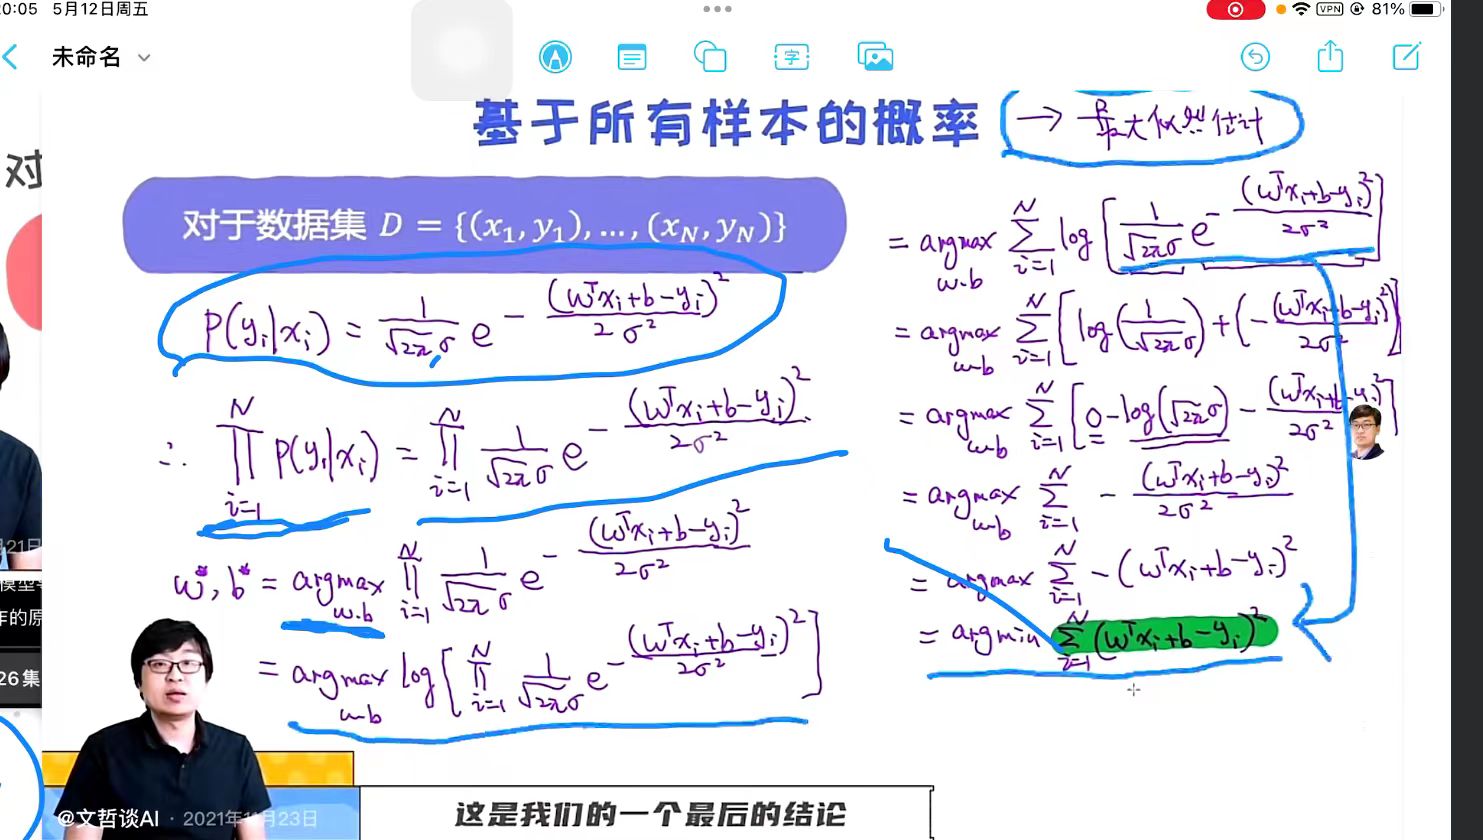 20:05 5月12日周五
VPN 81%
未命名
字
基于所有样本的概率 → 最大似然估计
对
对于数据集 D = {(x₁, y₁), ..., (x_N, y_N)}
P(yᵢ|xᵢ) = 1/(√2πσ) e^{-(wᵀxᵢ+b-yᵢ)²/2σ²}
∴ ∏_{i=1}^{N} P(yᵢ|xᵢ) = ∏_{i=1}^{N} 1/(√2πσ) e^{-(wᵀxᵢ+b-yᵢ)²/2σ²}
w*, b* = argmax_{w.b} ∏_{i=1}^{N} 1/(√2πσ) e^{-(wᵀxᵢ+b-yᵢ)²/2σ²}
= argmax_{w.b} log[∏_{i=1}^{N} 1/(√2πσ) e^{-(wᵀxᵢ+b-yᵢ)²/2σ²}]
= argmax_{w.b} ∑_{i=1}^{N} log[1/(√2πσ) e^{-(wᵀxᵢ+b-yᵢ)²/2σ²}]
= argmax_{w.b} ∑_{i=1}^{N} [log(1/(√2πσ)) + (-(wᵀxᵢ+b-yᵢ)²/2σ²)]
= argmax_{w.b} ∑_{i=1}^{N} [0 - log(√2πσ) - (wᵀxᵢ+b-yᵢ)²/2σ²]
= argmax_{w.b} ∑_{i=1}^{N} - (wᵀxᵢ+b-yᵢ)²/2σ²
= argmax ∑_{i=1}^{N} -(wᵀxᵢ+b-yᵢ)²
= argmin ∑_{i=1}^{N} (wᵀxᵢ+b-yᵢ)²
21日
模型
作的原
26集
@文哲谈AI · 2021年11月23日
这是我们的一个最后的结论